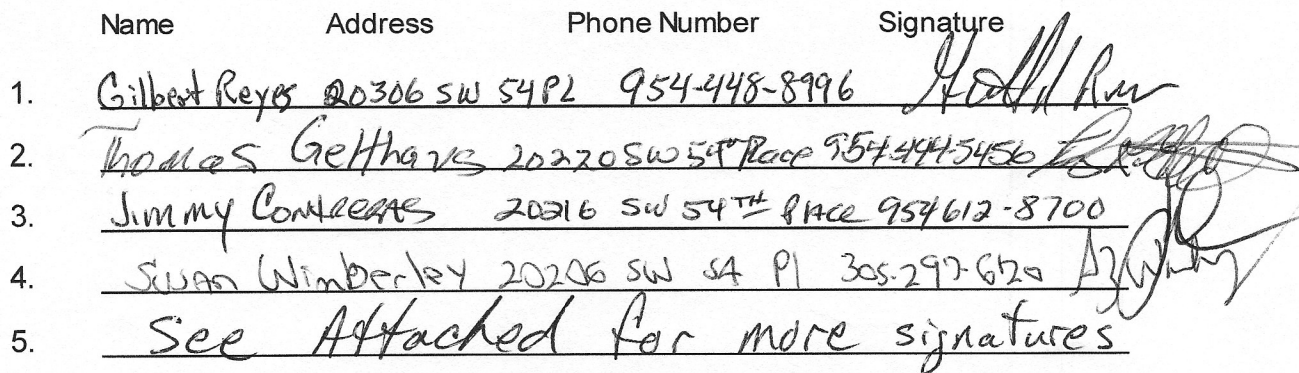 Name Address Phone Number Signature
1. Gilbert Reyes 20306 SW 54 PL 954-448-8996
2. Thomas Gelthaus 20220 SW 54th Place 954-444-5456
3. Jimmy Contreras 20216 SW 54TH PlACE 954 612-8700
4. Susan Wimberley 20206 SW 54 Pl 305-297-6120
5. See Attached for more signatures